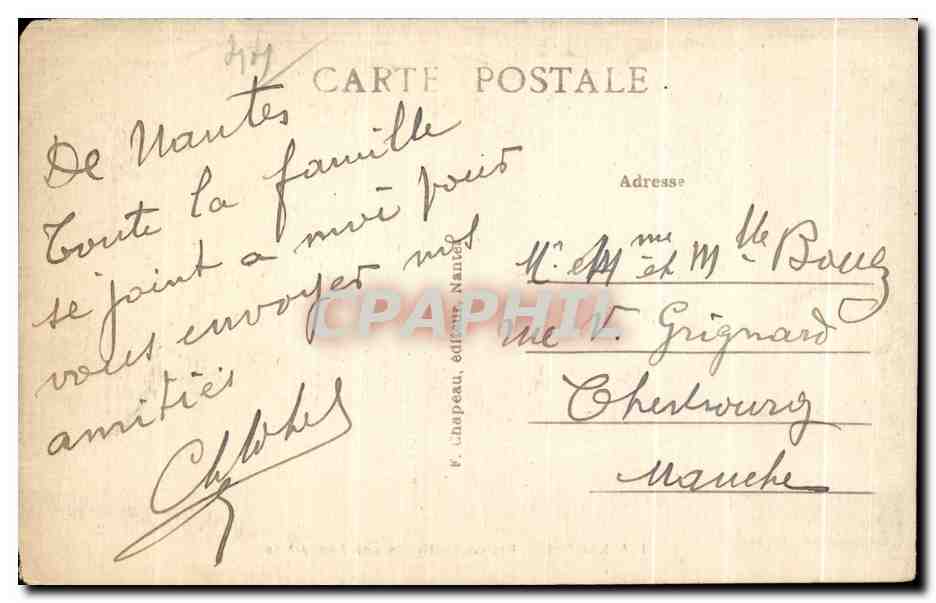 44
CARTE POSTALE
De Nantes
Toute la famille
se joint a moi pour
vous envoyer mes
amitiés
F. Chapeau, éditeur, Nantes
Adresse
Mr et Mme et Mlle
rue V. Grignard
Cherbourg
Manche
CPAPHIL